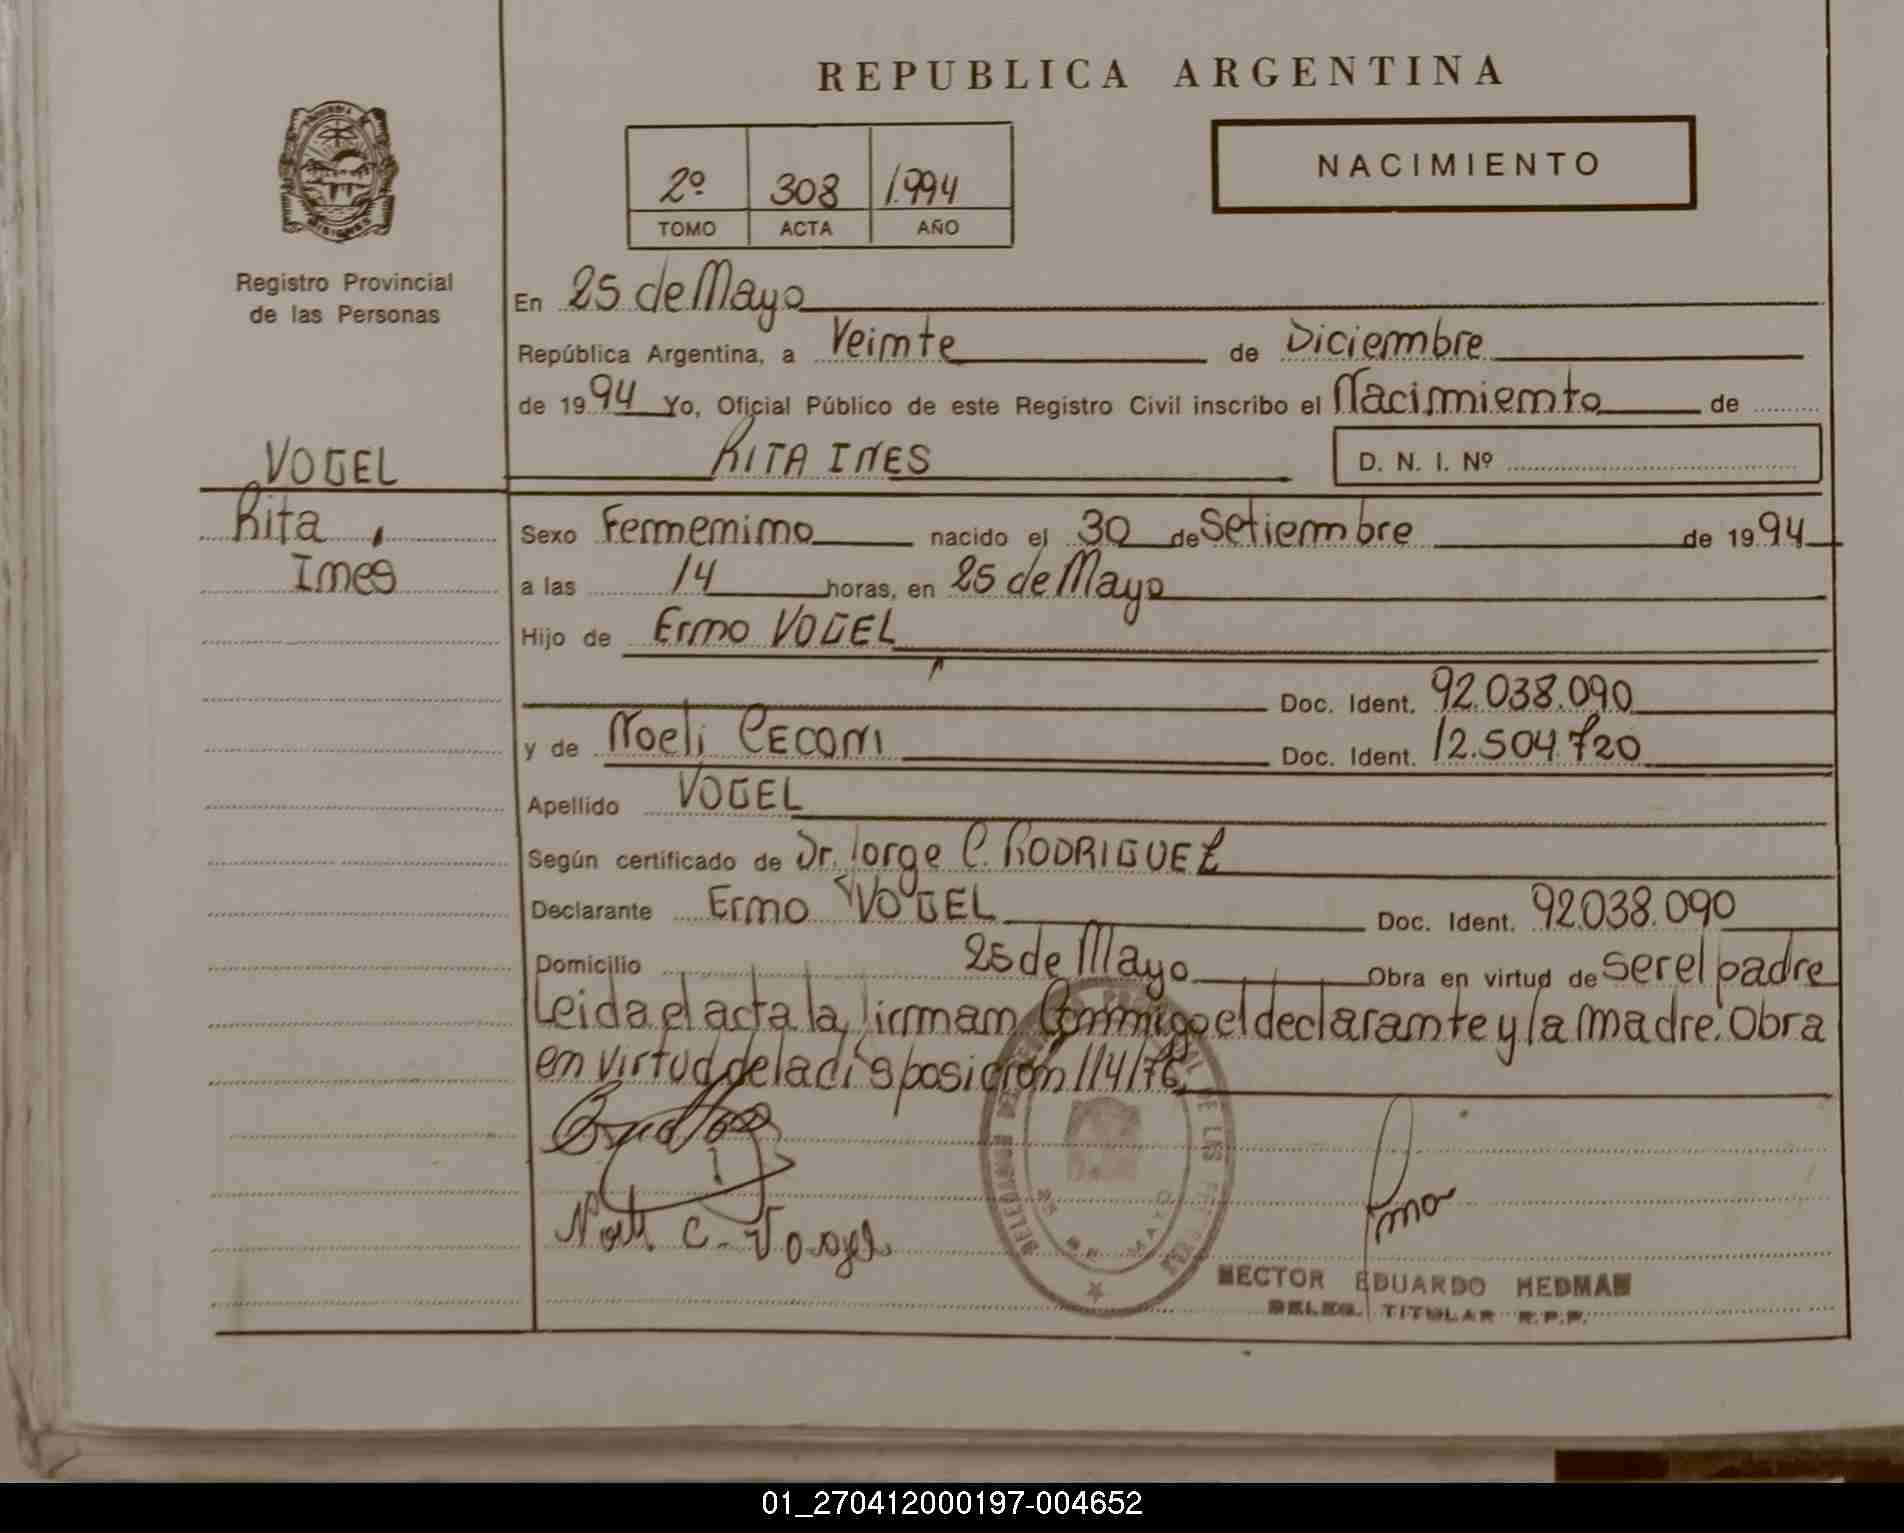 REPUBLICA ARGENTINA
NACIMIENTO
2º 308 1.994
TOMO ACTA AÑO
Registro Provincial
de las Personas
En 25 de Mayo
República Argentina, a Veinte de Diciembre
de 1994 Yo, Oficial Público de este Registro Civil inscribo el Nacimiento de
RITA INES D. N. I. Nº
VOGEL
Rita
Ines
Sexo Femenino nacido el 30 de Setiembre de 1994
a las 14 horas, en 25 de Mayo
Hijo de Erno VOGEL
Doc. Ident. 92.038.090
y de Noeli CECONI Doc. Ident. 12.504.720
Apellido VOGEL
Según certificado de Dr. Jorge C. RODRIGUEZ
Declarante Erno VOGEL Doc. Ident. 92.038.090
Domicilio 25 de Mayo Obra en virtud de ser el padre
Leida el acta la firman Conmigo el declarante y la madre. Obra
en virtud de la disposición 114/76
HECTOR EDUARDO HEDMAN
DELEG. TITULAR R.P.P.
01_270412000197-004652